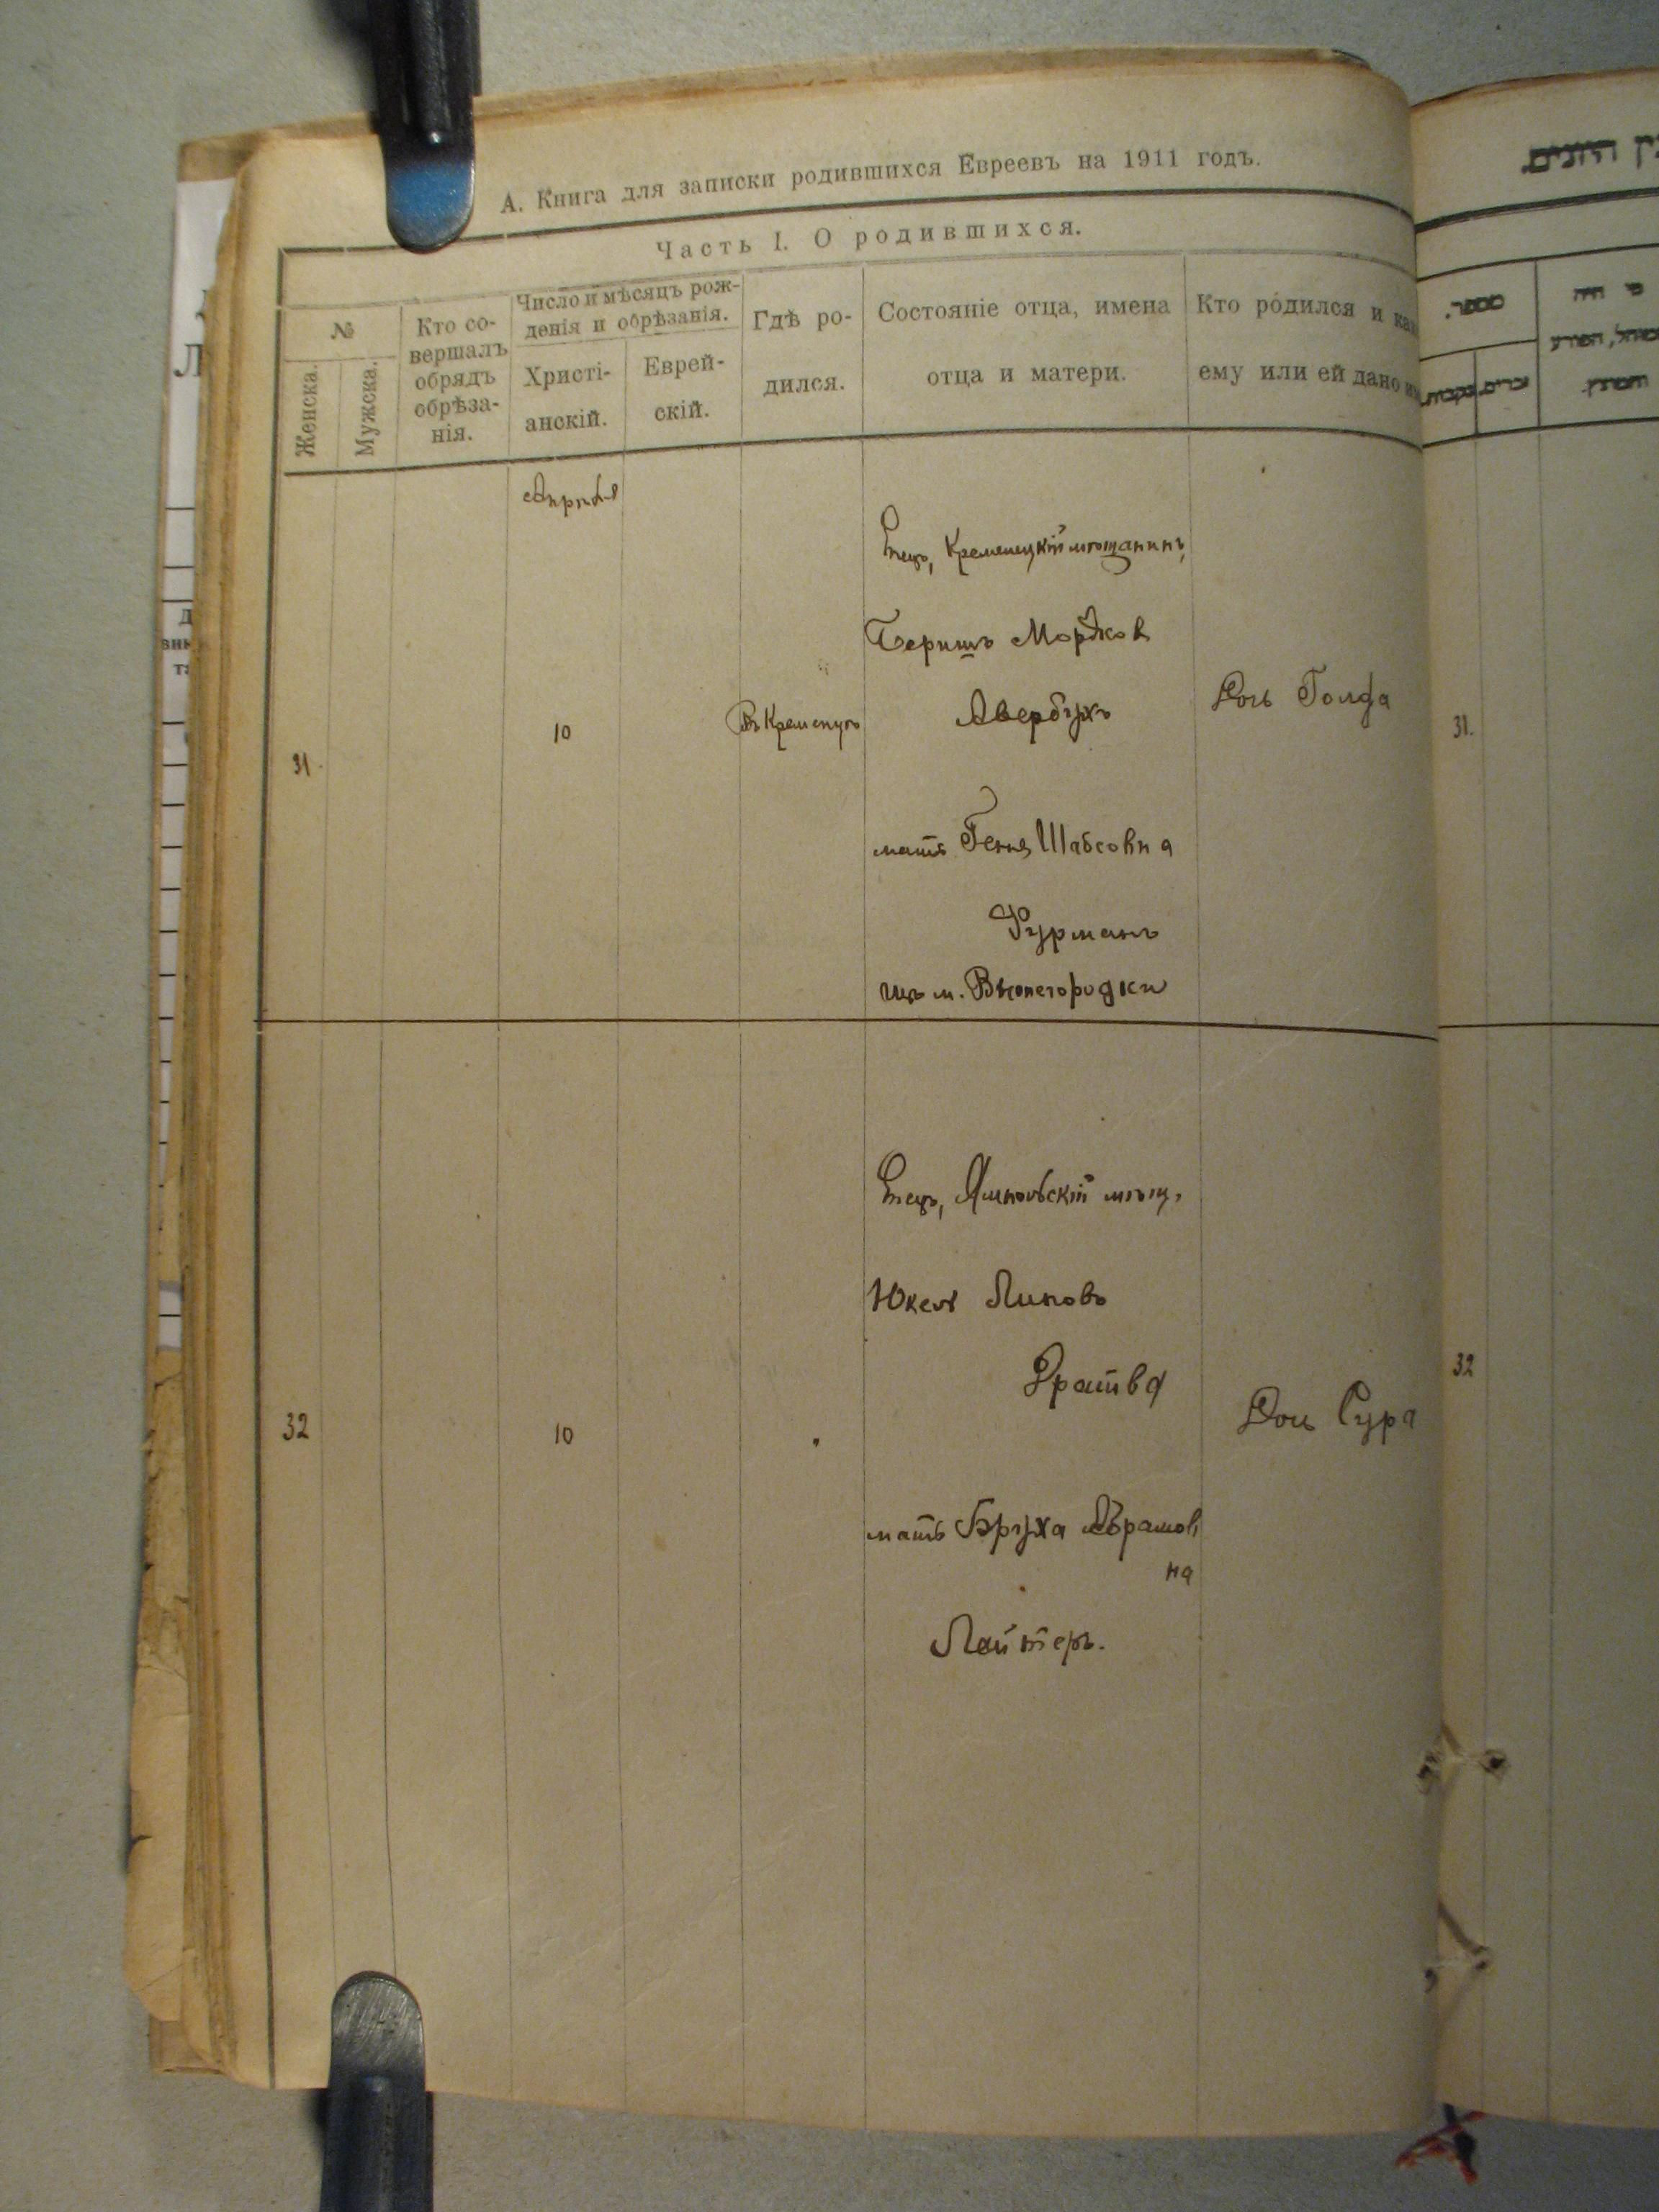 А. Книга для записки родившихся Евреевъ на 1911 годъ.
Часть I. О родившихся.
№
Женска.
Мужска.
Кто со-
вершалъ
обрядъ
обрѣза-
нія.
Число и мѣсяцъ рож-
денія и обрѣзанія.
Христі-
анскій.
Еврей-
скій.
Гдѣ ро-
дился.
Состояніе отца, имена
отца и матери.
Кто родился и
ему или ей дано
Апрѣля
31
10
Въ Кременцѣ
Отецъ, Кременецкій мѣщанинъ,
Беришъ Мордков
Авербухъ
мать Геня Шабсовна
Фурманъ
изъ м.
Дочь Голда
31.
32
10
Отецъ, Ямпольскій мѣщ.
Юкель Липовъ
Дратва
мать Бруха Абрамов
на
Лейтеръ.
Дочь Сура
32
מספר.
נקבות.
זכרים.
מי היה